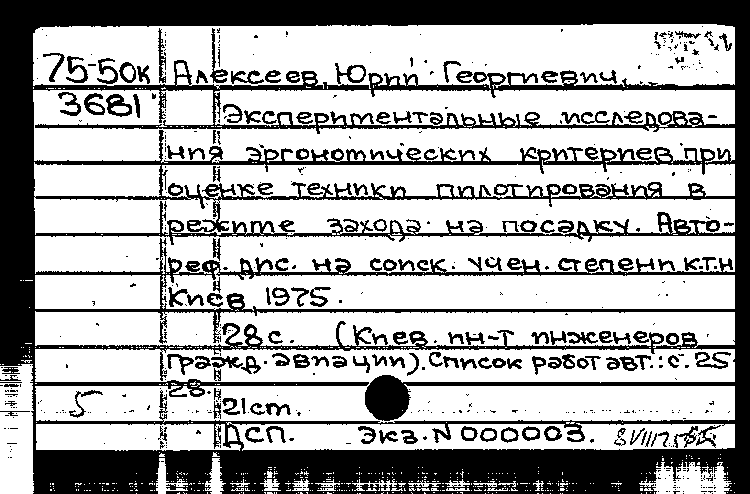 75-50к Алексеев, Юрий Георгиевич.
3681 Экспериментальные исследова-
ния эргономических критериев при
оценке техники пилотирования в
режиме захода на посадку. Авто-
реф. дис. на соиск. учен. степени к.т.н
Киев, 1975.
28 с. (Киев. ин-т инженеров
гражд. авиации). Список работ авт.: с. 25-
28.
5 21 cm.
ДСП. Экз. N 000003.